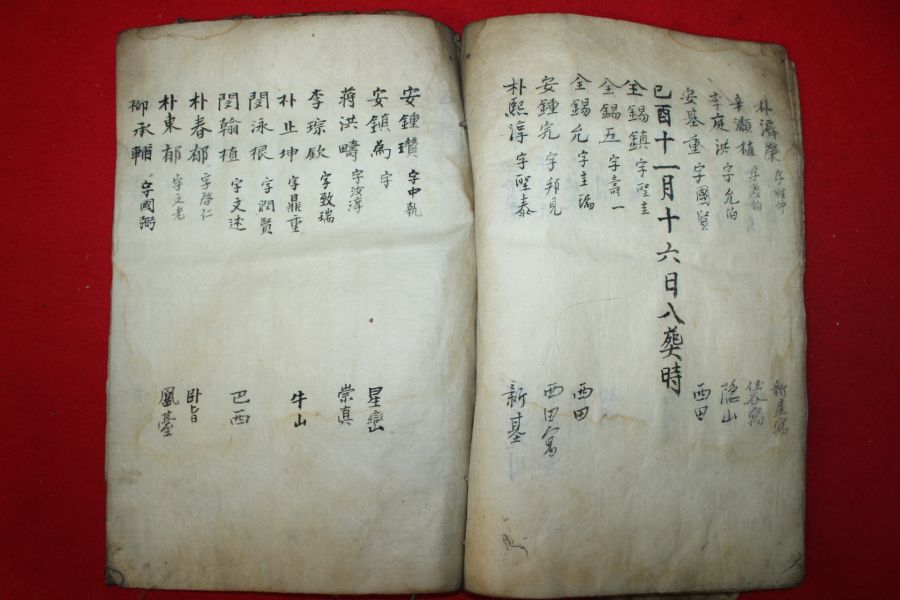 朴濟榮 字性仲 新星寓
辛灝植 字茂伯 佳谷寓
李庭洪 字允伯 隠山
安基重 字國賢 西田
己酉十一月十六日入葬時
全錫鎮 字聖圭
全錫五 字壽一
全錫允 字圭瑞 西田
安鍾完 字邦見 西田寓
朴熙淳 字聖泰 新基
安鍾瓚 字中執
安鎮為 字 星巒
蔣洪疇 字汝淳 崇真
李琮欽 字致瑞
朴止坤 字鼎重 牛山
閔泳根 字潤賢
閔翰植 字文述 巴西
朴春郁 字啓仁 卧旨
朴東郁 字文老 鳳臺
柳承輔 字國弼